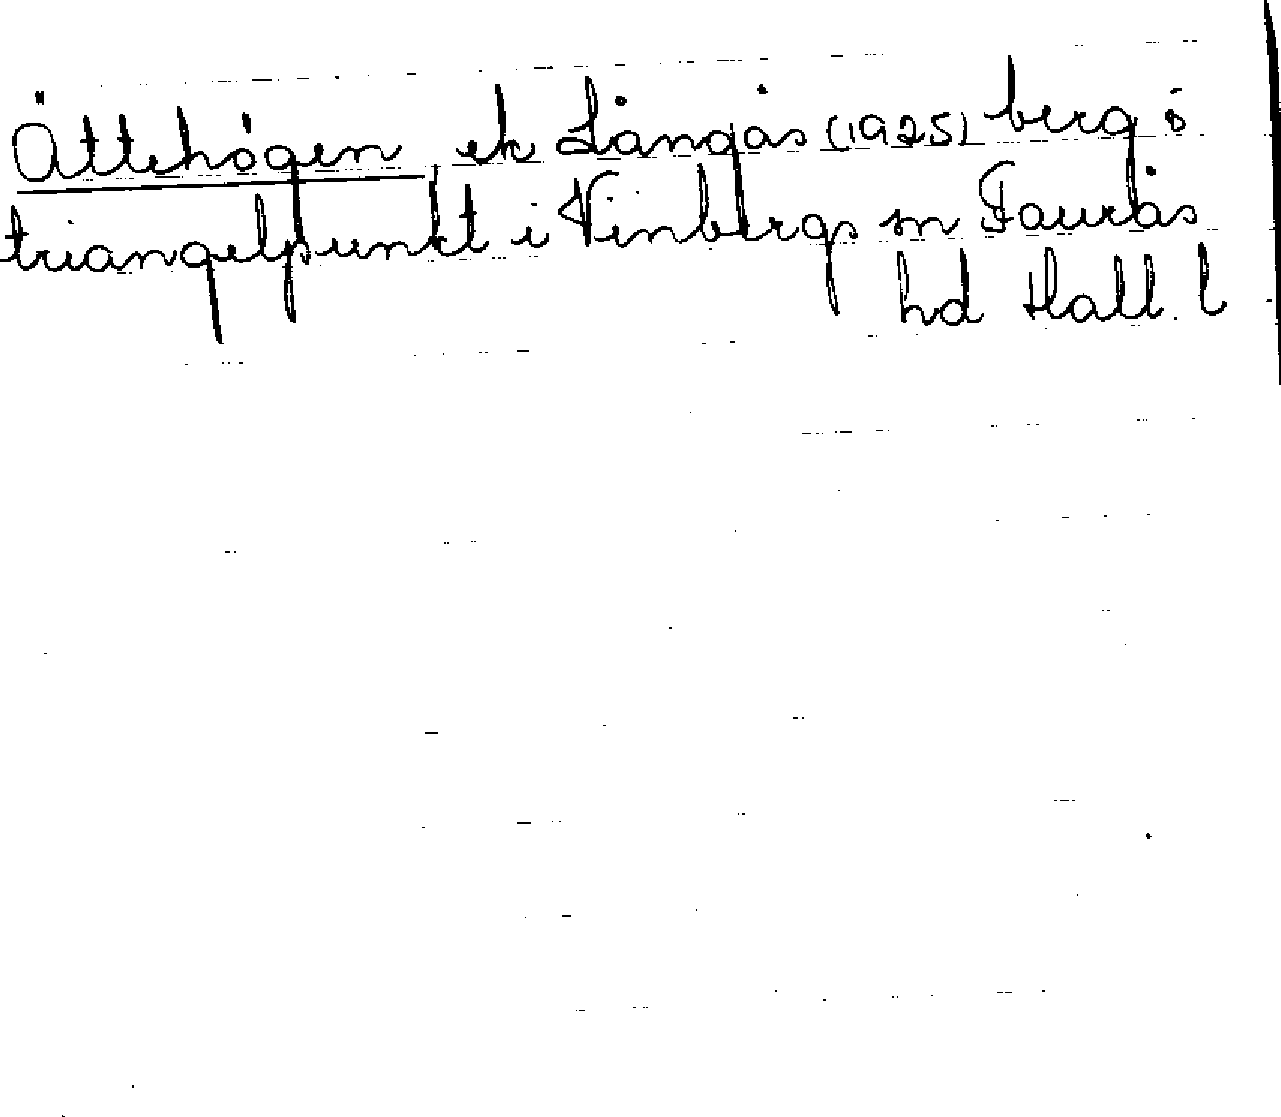 Ättehögen ek Långås (1925) berg o
triangelpunkt i Vinbergs sn Faurås
hd Hall. l